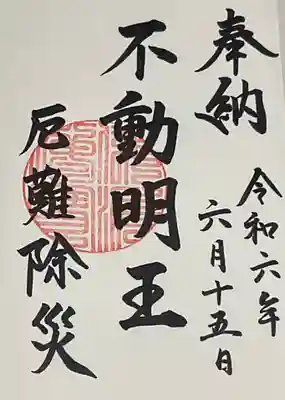 奉納
令和六年
六月十五日
不動明王
厄難除災